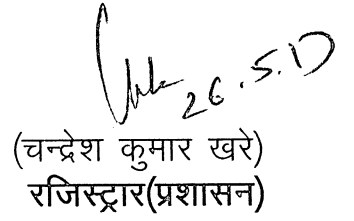 26.5.17
(चन्द्रेश कुमार खरे)
रजिस्ट्रार(प्रशासन)